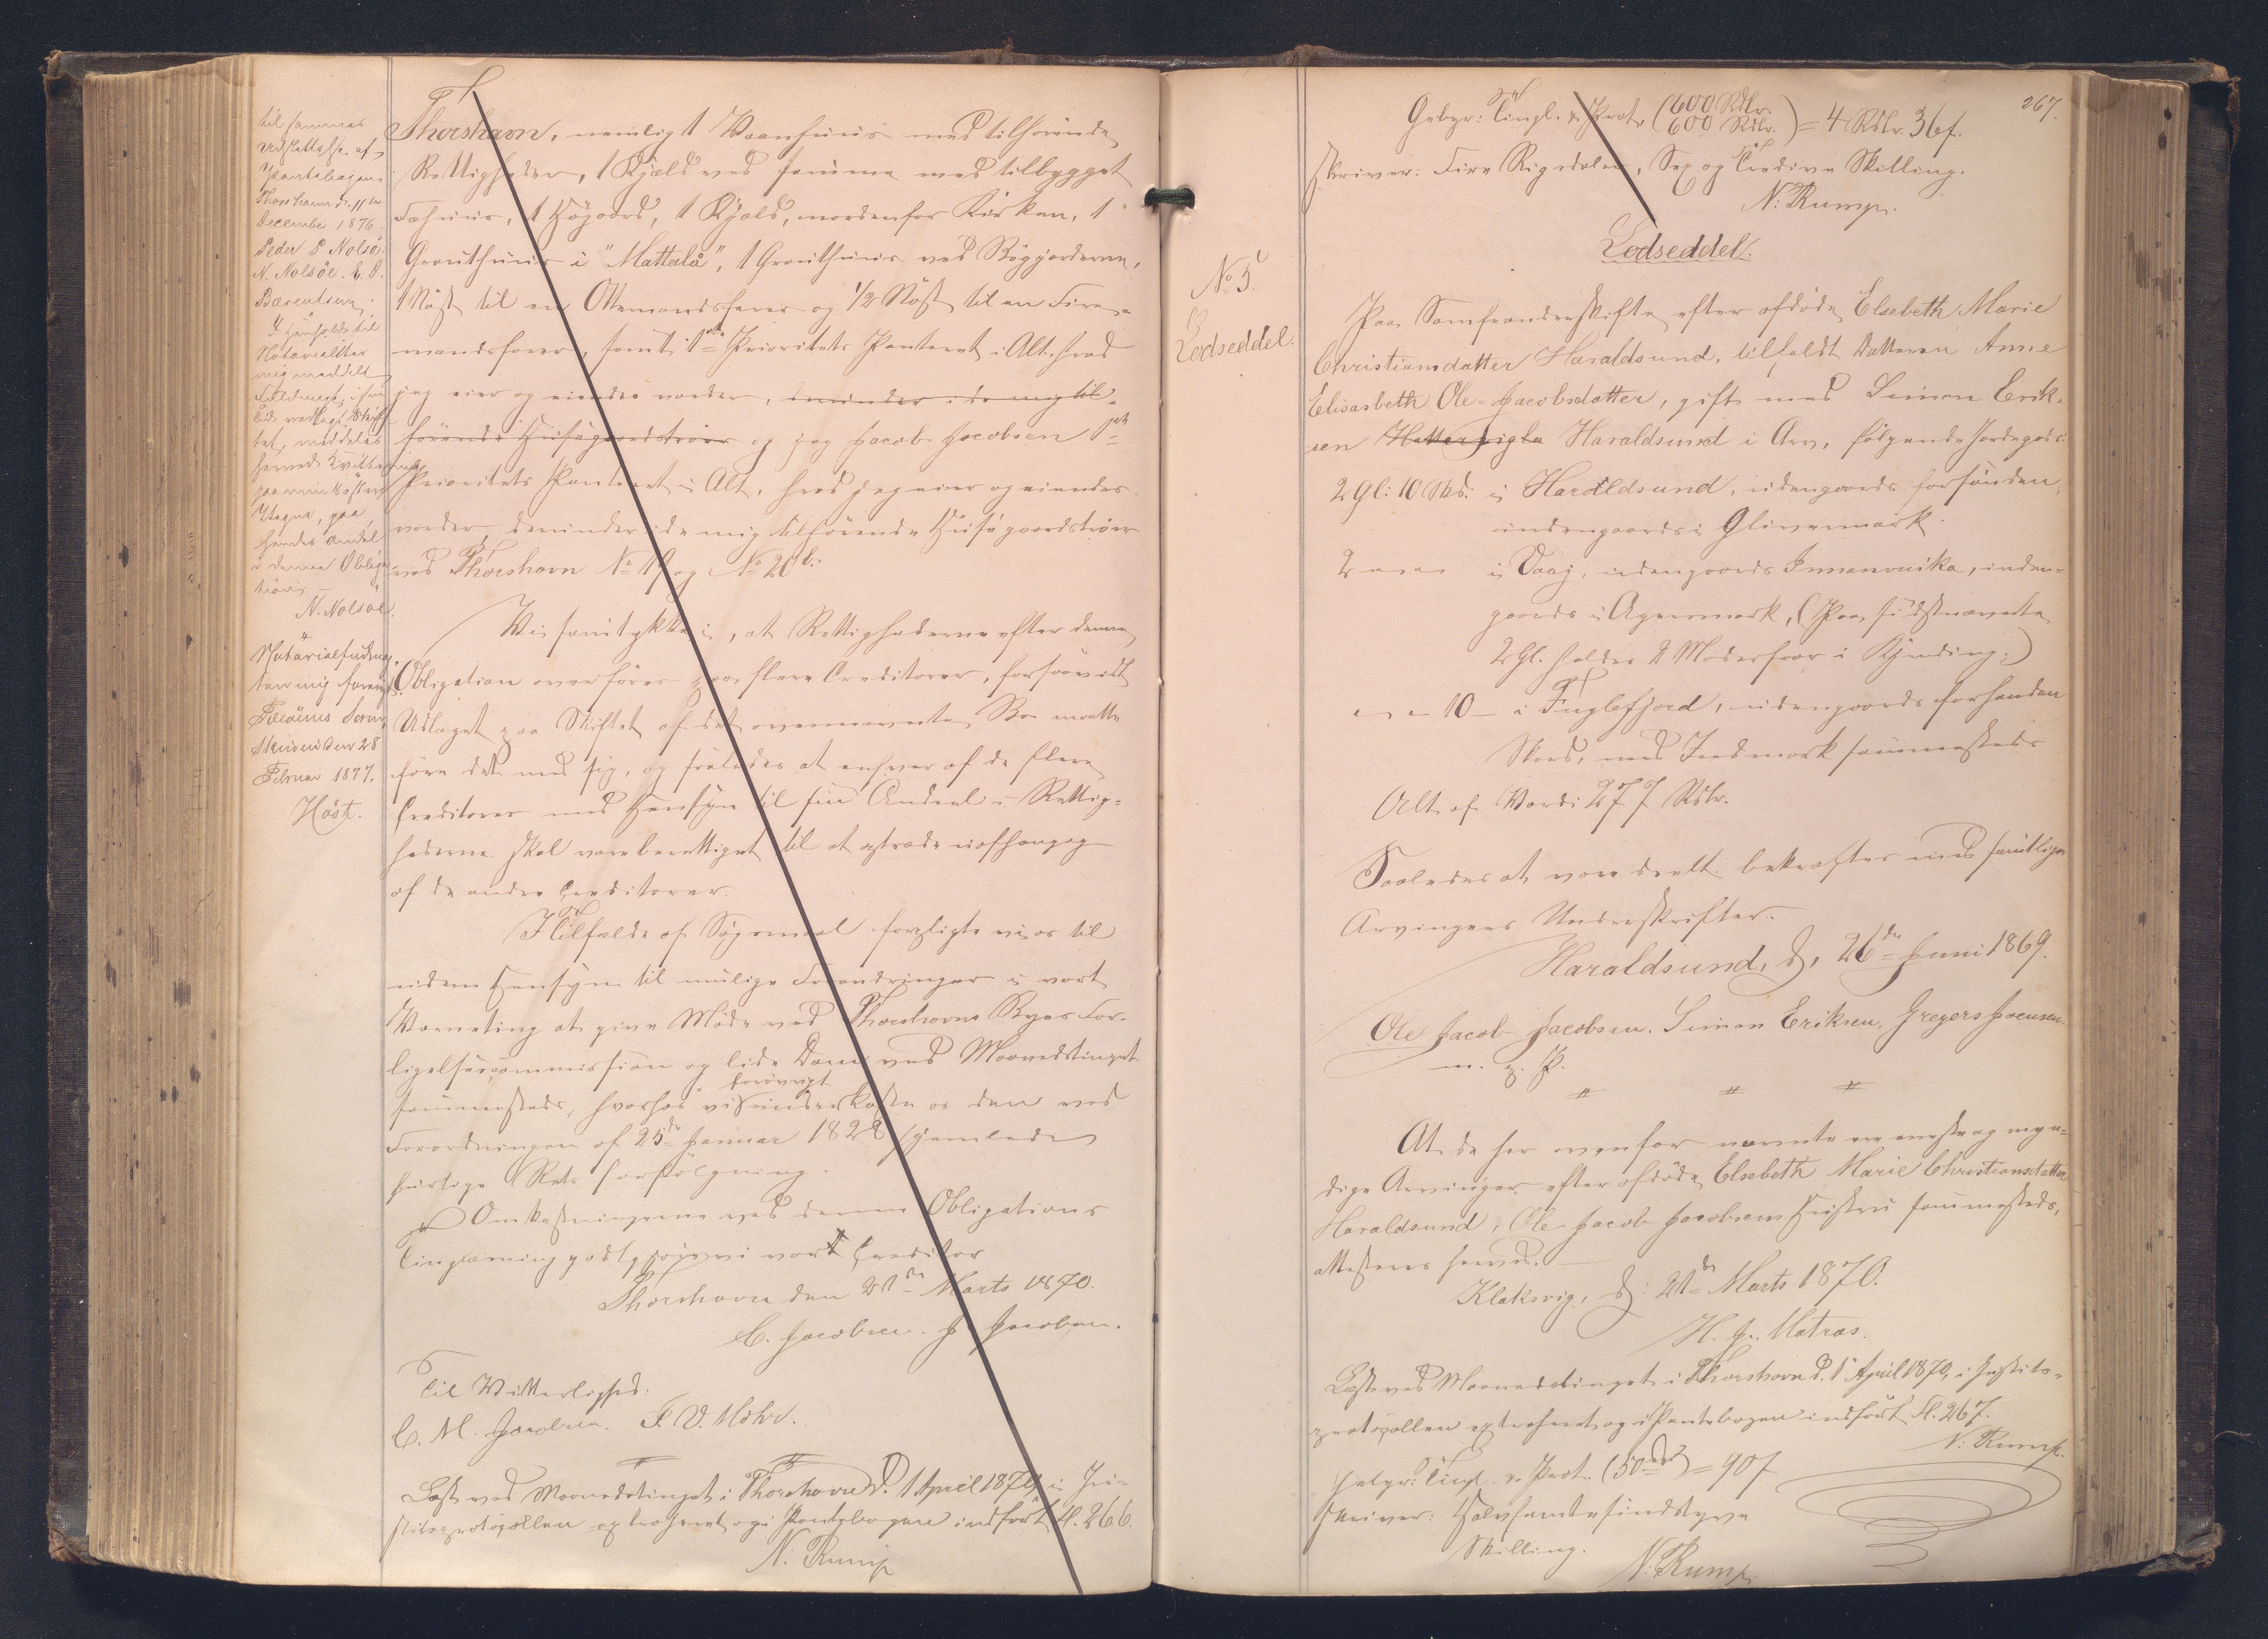 til sammes
Udslettelse af
Pantebogen.
Thorshavn d. 11te
December 1876
Peder P Nolsöe
N. Nolsöe. E. D.
Bærentsen.
I Henhold til
Notarialiter
mig meddelt
Fuldmagt, i sin
Tid vedlagt Skif-
tet, meddeles
herved Kvittering
paa min Söster
Vegne, paa
hendes Andel
i denne Obliga-
tion
N. Nolsöe.
Notarialfuldmag-
ten mig forevist
Færöernes Soren-
skriveri den 28
Februar 1877.
Höst.
Thorshavn, nemlig 1 Vaanhuus med tilhörende
Rettigheder, 1 Kjæld ved samme med tilbygget
Fæhuus, 1 Högaard, 1 Kjæld, nordenfor Kirken, 1
Grouthuus i "Mattalå", 1 Grouthuus ved Bøggjorderne,
1 Nöst til en Ottemandsfarer og 1/2 Nöst til en Fire-
mandsfarer, samt 1ste Prioritets Panteret i Alt, hvad
jeg eier og eiendes vorder, herunder i de mig til-
hörende Huusgaardströer og jeg Jacob Jacobsen 1ste
Prioritets Panteret i Alt, hvad jeg eier og eiendes
vorder, herunder i de mig tilhörende Huusgaardströer
ved Thorshavn No 19 og No 20 b.
Vi samtykke i, at Rettighederne efter denne
Obligation overföres paa flere Creditorer, forsaavidt
Udlæget paa Skiftet af det ovennævnte Bo maatte
före det med sig, og saaledes at enhver af de flere
Creditorer med Hensyn til sin Andeel i Rettig-
hederne skal være berettiget til at optræde uafhængig
af de andre Creditorer.
I Tilfælde af Søgsmaal forpligte vi os til
uden Hensyn til mulige Forandringer i vort
Værneting at give Möde ved Thorshavns Byes For-
ligelsescommission og lide Dom ved Maanedstinget
sammesteds, hvorhos vi forövrigt underkaste os den ved
Forordningen af 25de Januar 1828 hjemlede
hurtige Rets forfölgning.
Omkostningerne ved denne Obligations
Tinglæsning godtgjöre vi vor Creditor
Thorshavn den 21de Marts 1870.
C. Jacobsen. J. Jacobsen.
Til Vitterlighed:
C. M. Jacobsen. P. V. Mohr.
Læst ved Maanedstinget i Thorshavn d. 1 April 1870, i Ju-
stitsprotocollen extraheret og i Pantebogen indfört fl. 266.
N. Rump
267.
Gebyr: Tingl. & Prot. (600 Rdlr. 600 Rdlr.) = 4 Rdlr. 36 f.
skriver: Fire Rigsdaler, Sex og Tredive Skilling.
N: Rump.
Lodseddel.
No 5.
Lodseddel.
Paa Samfrændeskifte efter afdöde Elsebeth Marie
Christiansdatter Haraldsund, tilfaldt Datteren Anne
Elisasbeth Ole-Jacobsdatter, gift med Simon Erik-
sen Hattervigla Haraldsund i Arv, fölgende Jordegods:
2 Gl: 10 Skd: i Haraldsund, udengaards forsönden,
indengaards i Glivermark.
2 " " " i Vaaj, udengaards Innanvuika, inden-
gaards i Agnermark, (Paa sidstnævnte
2 Gl. holdes 2 Moderfaar i Kjending.)
" " " 10 " i Fuglefjord, udengaards forhanden
Skord, med Indmark sammesteds
Alt af Værdi 277 Rdlr.
Saaledes at være deelt bekræftes med samtlige
Arvingers Underskrifter.
Haraldsund, d. 26de Juni 1869.
Ole Jacob Jacobsen. Simon Eriksen. Gregers Joensen.
m. p. P.
At de her ovenfor nævnte ere eneste og myn-
dige Arvinger efter afdöde Elsebeth Marie Christiansdatter
Haraldsund, Ole Jacob Jacobsens Hustru sammesteds,
attesteres herved.
Klaksvig, d: 21de Marts 1870.
H. J. Matras.
Læst ved Maanedstinget i Thorshavn d. 1 April 1870, i Justits-
protocollen extraheret og i Pantebogen indfört fl. 267.
N: Rump.
Gebyr: Tingl. & Prot. (50 Rdl) = 90 f
skriver: Halvfemtesindstyve
Skilling.
N: Rump.